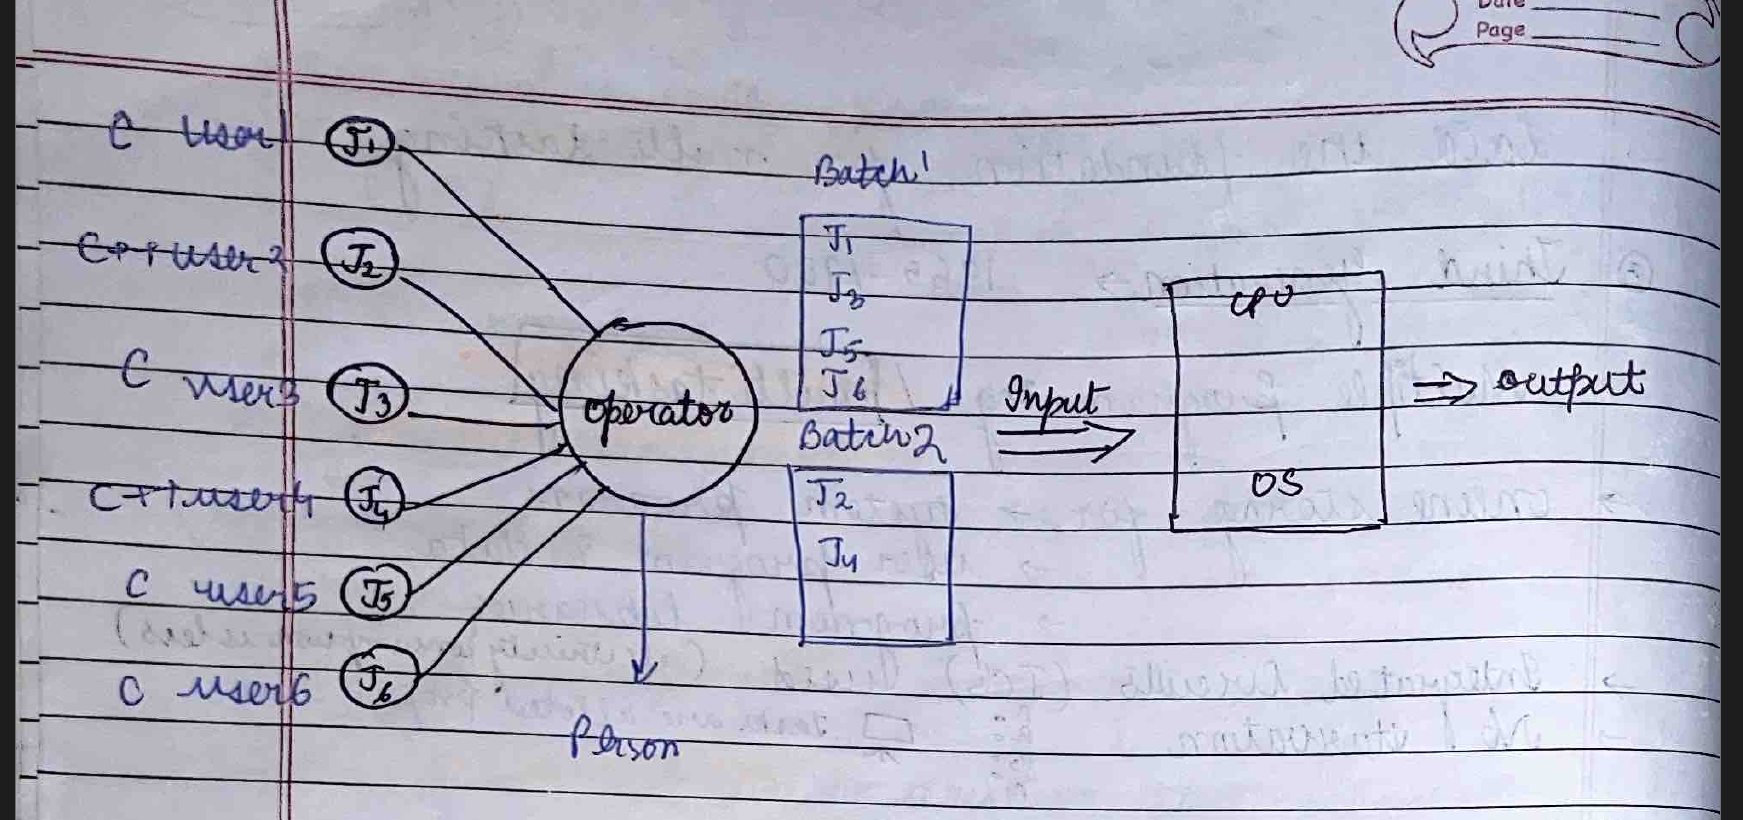 Date
Page
C User J1
C++ User 2 J2
C user3 J3
C++ user4 J4
C user5 J5
C user6 J6
operator
Person
Batch 1
J1
J3
J5
J6
Batch 2
J2
J4
Input
CPU
OS
output